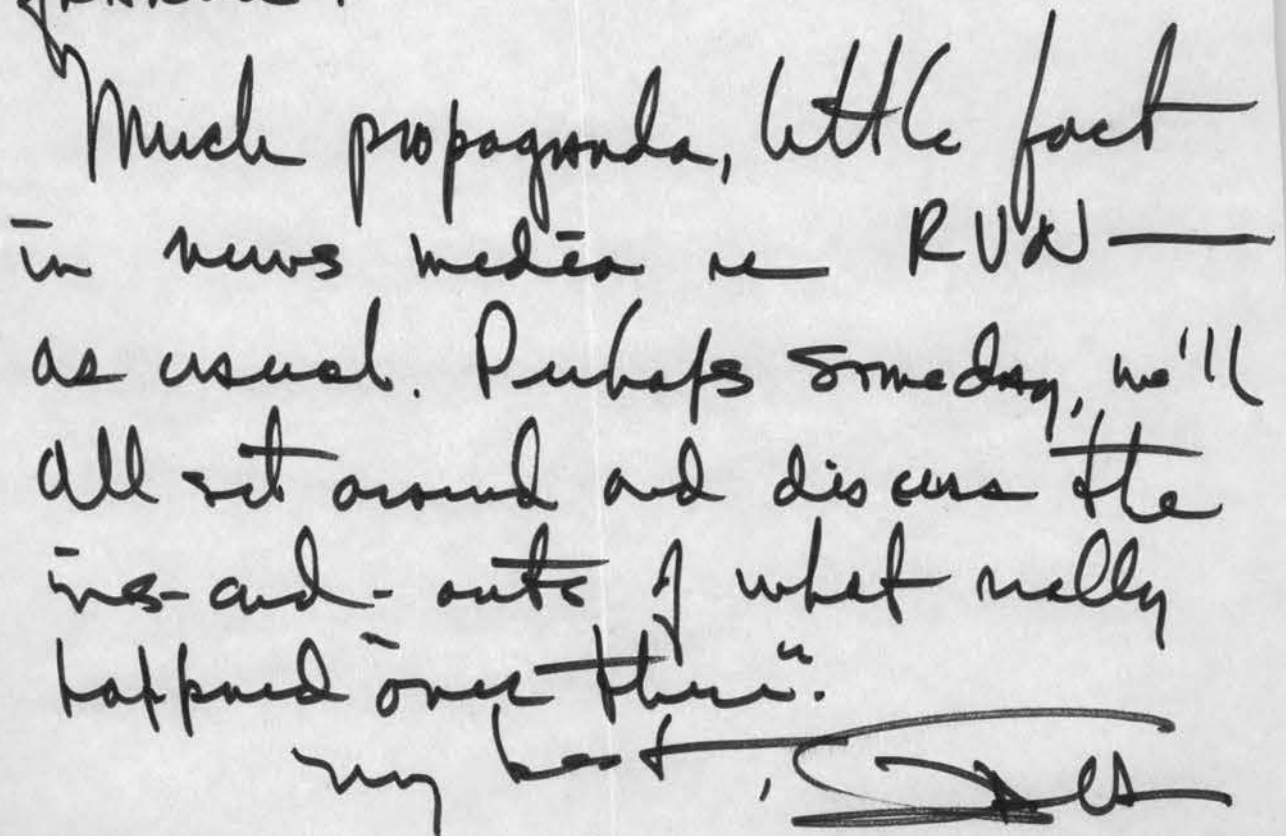 Much propaganda, little fact
in news media re RVN —
as usual. Perhaps someday, we'll
all sit around and discuss the
ins-and-outs of what really
happened "over there".
my best,